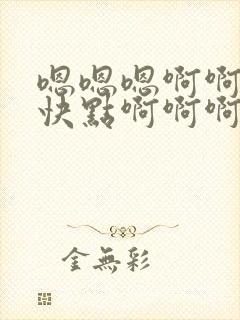 嗯嗯嗯啊啊
快點啊啊啊
金無彩